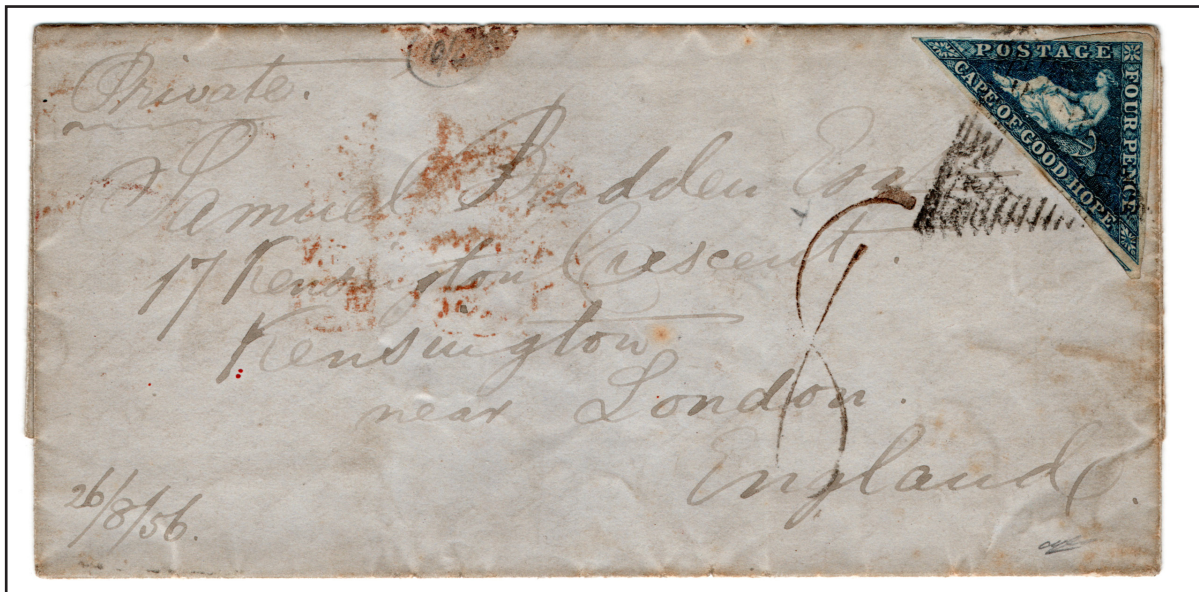 Private.
POSTAGE
FOUR PENCE
CAPE OF GOOD HOPE
Samuel Bedden Esq
17 Kensington Crescent.
Kensington
near London.
England.
8
26/8/56.